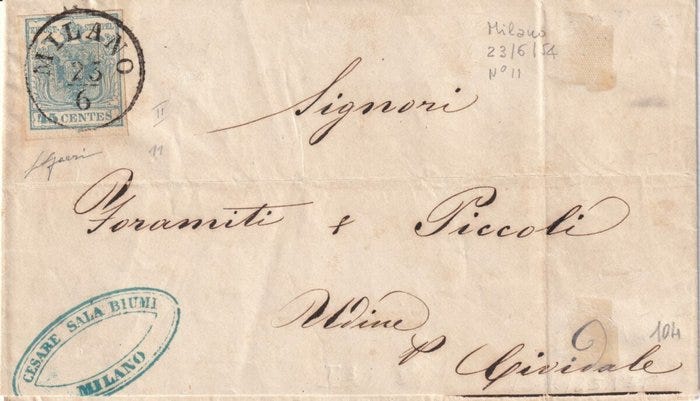 MILANO
23
6
45 CENTES
II
11
Milano
23/6/54
N° 11
Signori
Foramiti & Piccoli
Udine
p Cividale
104
CESARE SALA BIUMI
MILANO